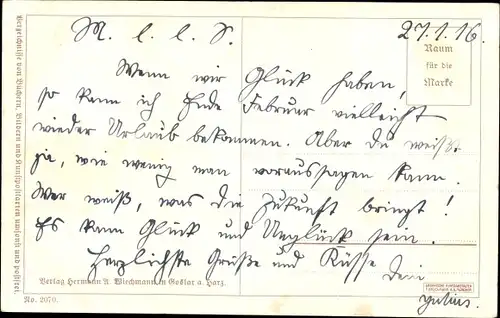 M. l. l. S.
27.1.16.
Raum
für die
Marke
Wenn wir Glück haben,
so kann ich Ende Februar vielleicht
wieder Urlaub bekommen. Aber du weißt
ja, wie wenig man voraussagen kann.
Wer weiß, was die Zukunft bringt!
Es kann Glück und Unglück sein.
Herzlichste Grüße und Küsse
Dein
Julius.
Verlag Hermann A. Wiechmann in Goslar a. Harz.
No. 2070.
Verzeichnisse von Büchern, Bildern und Kunstpostkarten umsonst und postfrei.